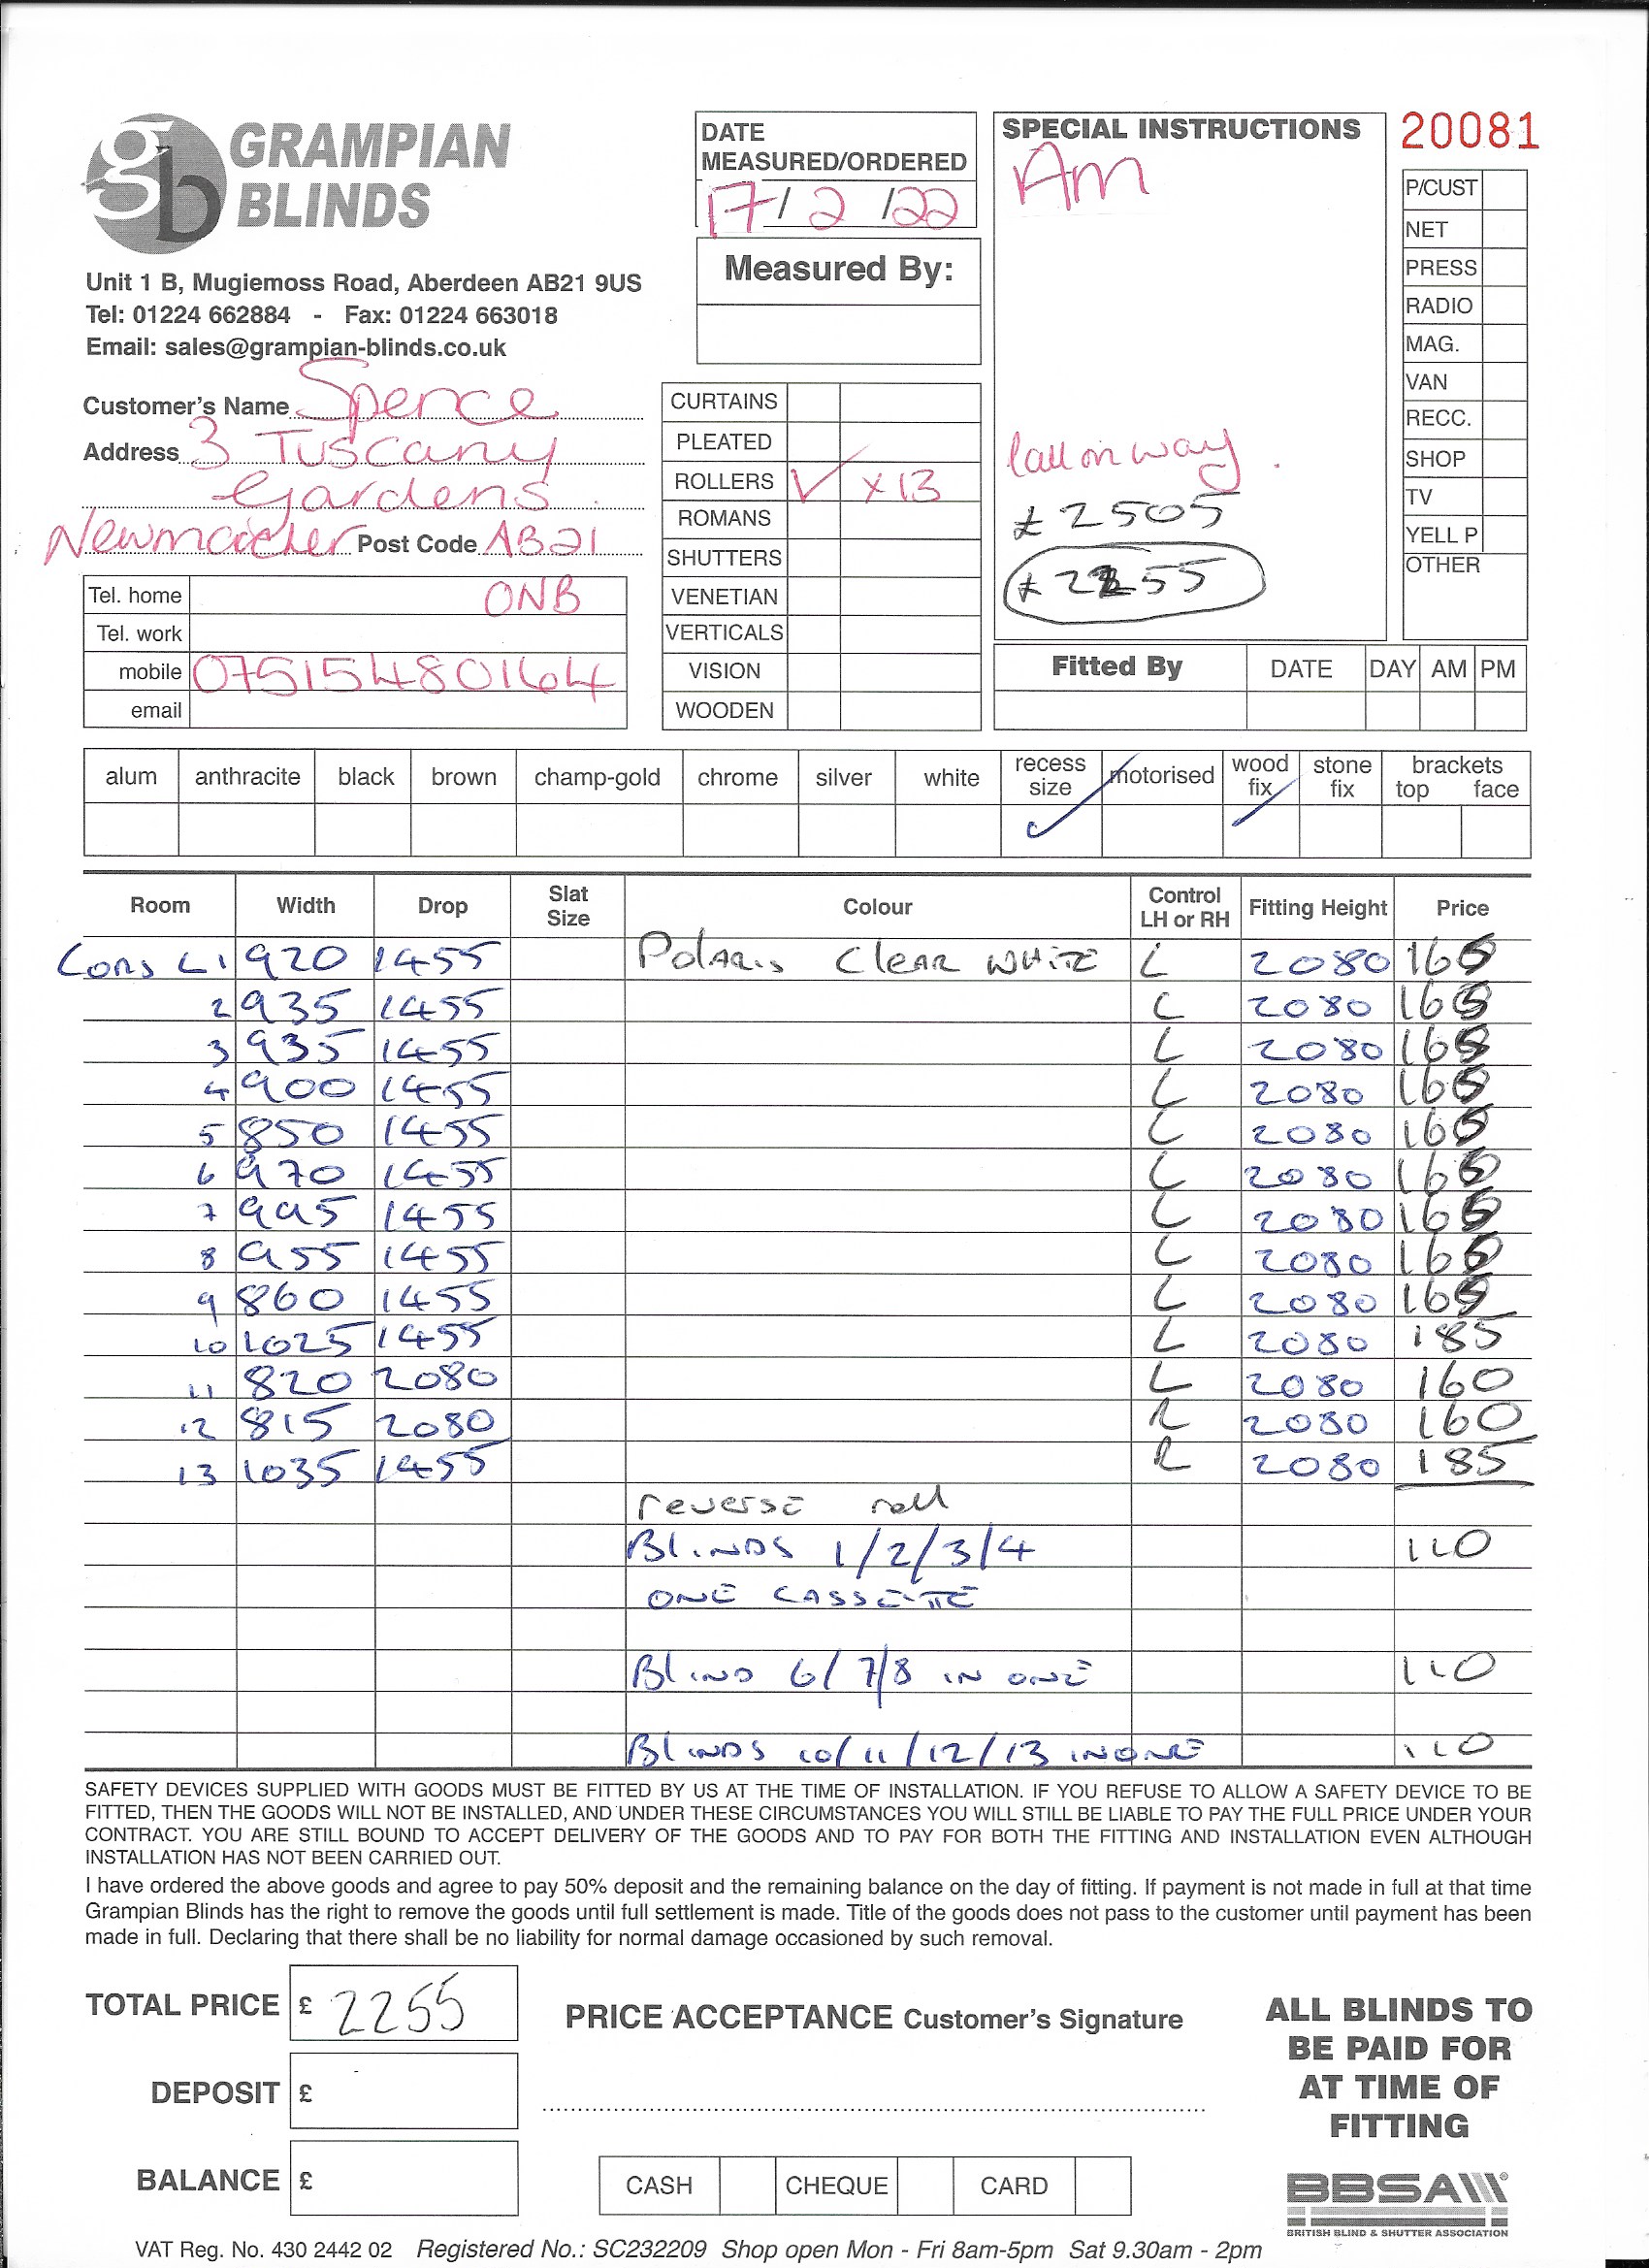 gb GRAMPIAN BLINDS
Unit 1 B, Mugiemoss Road, Aberdeen AB21 9US
Tel: 01224 662884 - Fax: 01224 663018
Email: sales@grampian-blinds.co.uk
Customer's Name Spence
Address 3 Tuscany
Gardens
Newmacher Post Code AB21
Tel. home 0NB
Tel. work
mobile 07515480164
email
DATE
MEASURED/ORDERED
17/2/22
Measured By:
CURTAINS
PLEATED
ROLLERS ✓ x13
ROMANS
SHUTTERS
VENETIAN
VERTICALS
VISION
WOODEN
SPECIAL INSTRUCTIONS
Am
Call on way.
£2505
£2255
20081
P/CUST
NET
PRESS
RADIO
MAG.
VAN
RECC.
SHOP
TV
YELL P
OTHER
Fitted By DATE DAY AM PM
alum anthracite black brown champ-gold chrome silver white recess size motorised wood fix stone fix brackets top face
✓ ✓
Room Width Drop Slat Size Colour Control LH or RH Fitting Height Price
Cons L1 920 1455 Polaris Clear WHITE L 2080 16
2 935 1455 L 2080 16
3 935 1455 L 2080 16
4 900 1455 L 2080 16
5 850 1455 L 2080 16
6 970 1455 L 2080 16
7 995 1455 L 2080 16
8 955 1455 L 2080 16
9 860 1455 L 2080 16
10 1025 1455 L 2080 185
11 820 2080 L 2080 160
12 815 2080 R 2080 160
13 1035 1455 R 2080 185
reverse roll
BLINDS 1/2/3/4 110
ONE CASSETTE
BLIND 6/7/8 IN ONE 110
BLINDS 10/11/12/13 IN ONE 110
SAFETY DEVICES SUPPLIED WITH GOODS MUST BE FITTED BY US AT THE TIME OF INSTALLATION. IF YOU REFUSE TO ALLOW A SAFETY DEVICE TO BE
FITTED, THEN THE GOODS WILL NOT BE INSTALLED, AND UNDER THESE CIRCUMSTANCES YOU WILL STILL BE LIABLE TO PAY THE FULL PRICE UNDER YOUR
CONTRACT. YOU ARE STILL BOUND TO ACCEPT DELIVERY OF THE GOODS AND TO PAY FOR BOTH THE FITTING AND INSTALLATION EVEN ALTHOUGH
INSTALLATION HAS NOT BEEN CARRIED OUT.
I have ordered the above goods and agree to pay 50% deposit and the remaining balance on the day of fitting. If payment is not made in full at that time
Grampian Blinds has the right to remove the goods until full settlement is made. Title of the goods does not pass to the customer until payment has been
made in full. Declaring that there shall be no liability for normal damage occasioned by such removal.
TOTAL PRICE £ 2255
DEPOSIT £
BALANCE £
PRICE ACCEPTANCE Customer's Signature
CASH CHEQUE CARD
ALL BLINDS TO
BE PAID FOR
AT TIME OF
FITTING
BBSA
BRITISH BLIND & SHUTTER ASSOCIATION
VAT Reg. No. 430 2442 02 Registered No.: SC232209 Shop open Mon - Fri 8am-5pm Sat 9.30am - 2pm